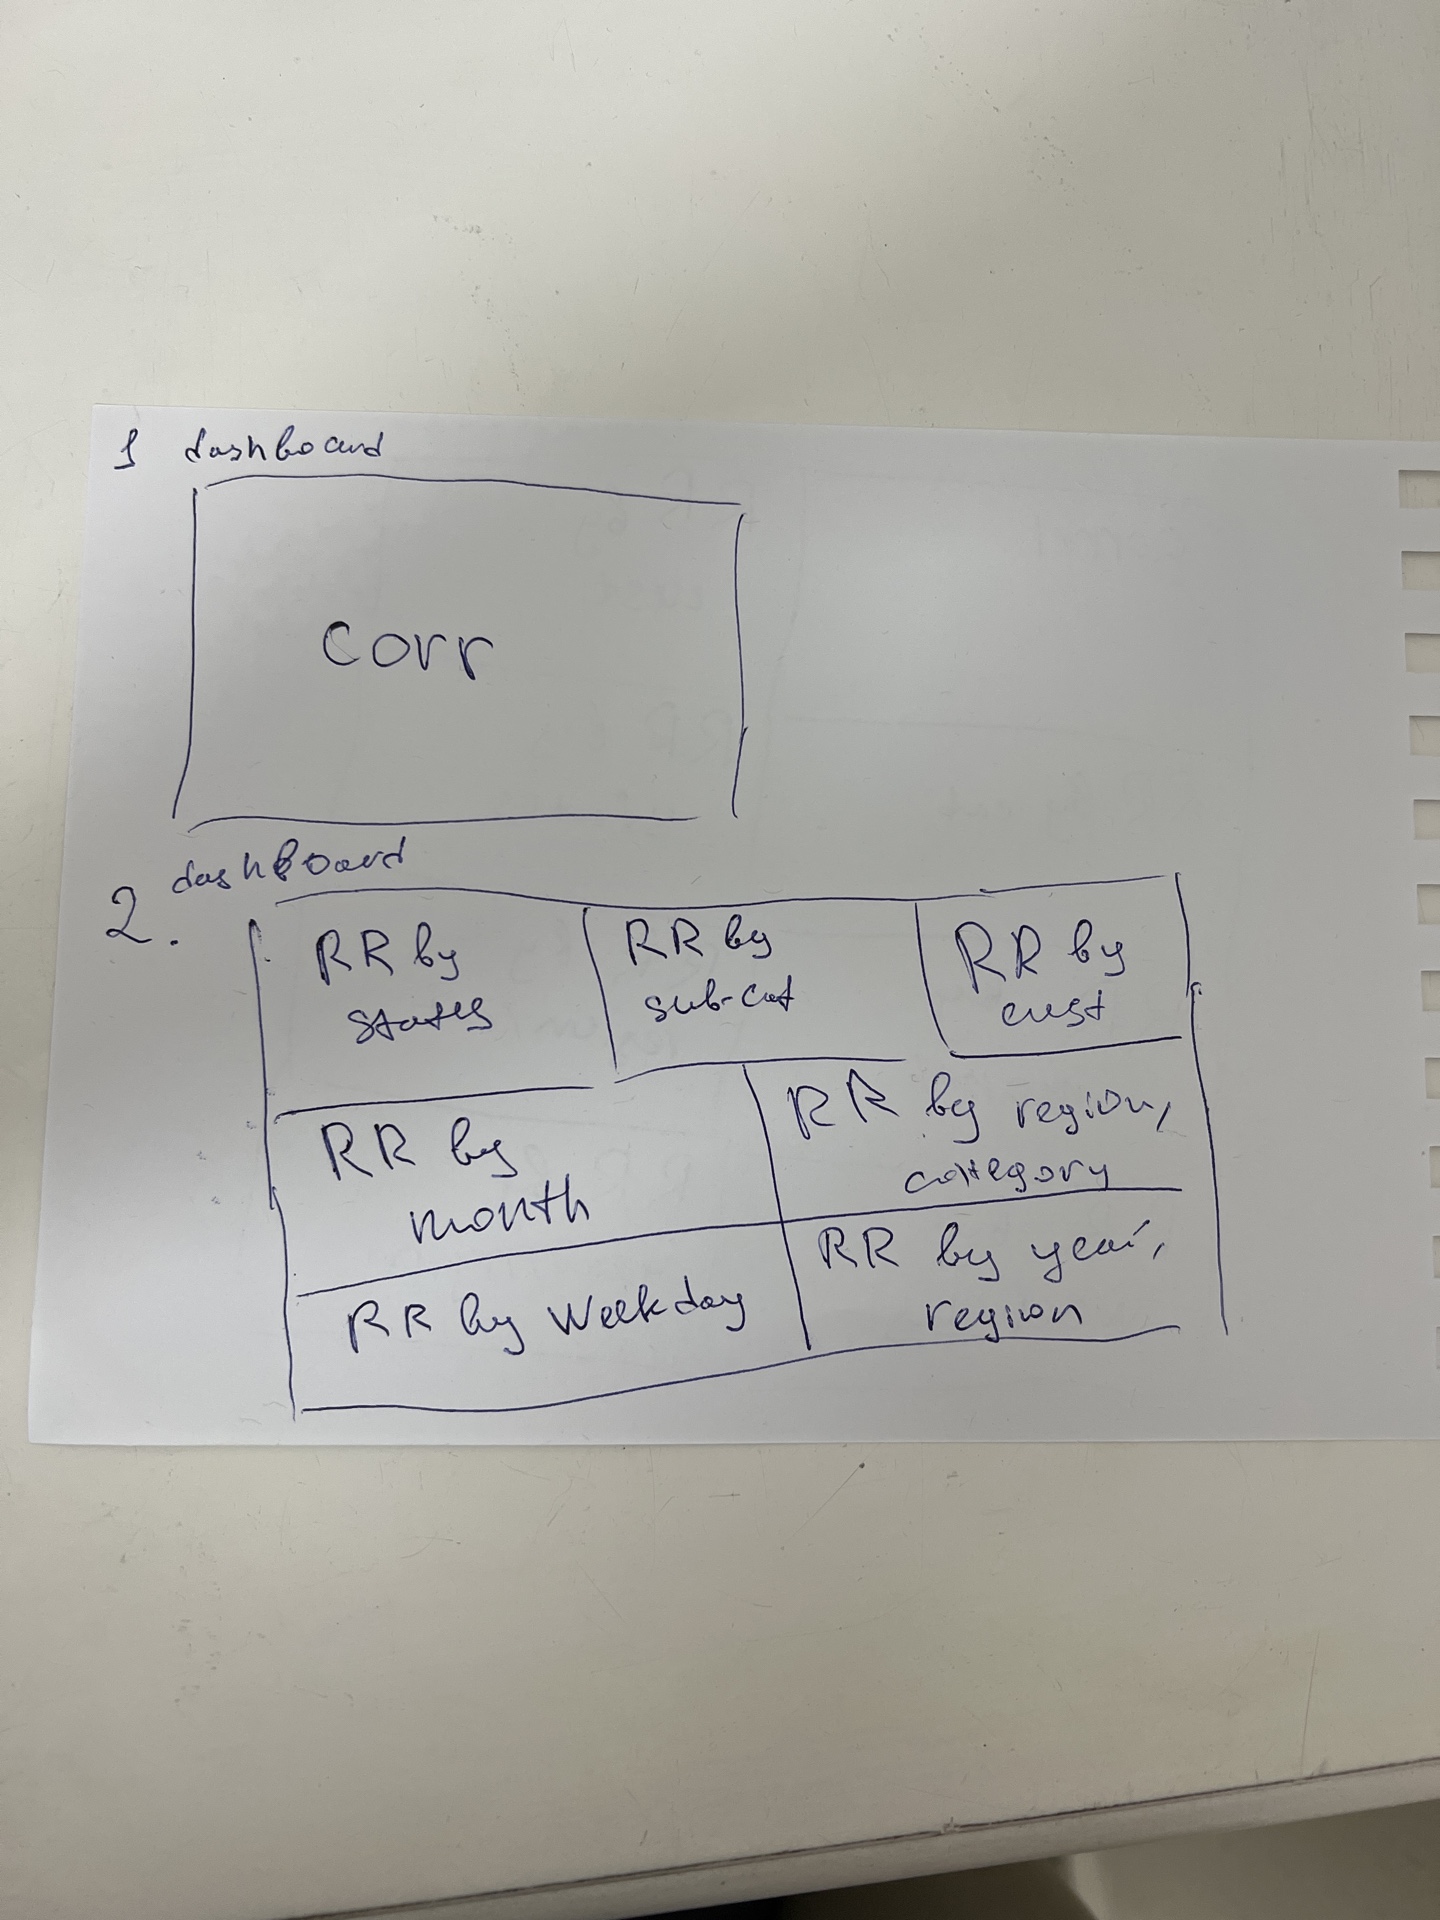 1 dashboard
corr
dashboard
2.
RR by
states
RR by
sub-cat
RR by
cust
RR by
month
RR by region,
category
RR by Weekday
RR by year,
region